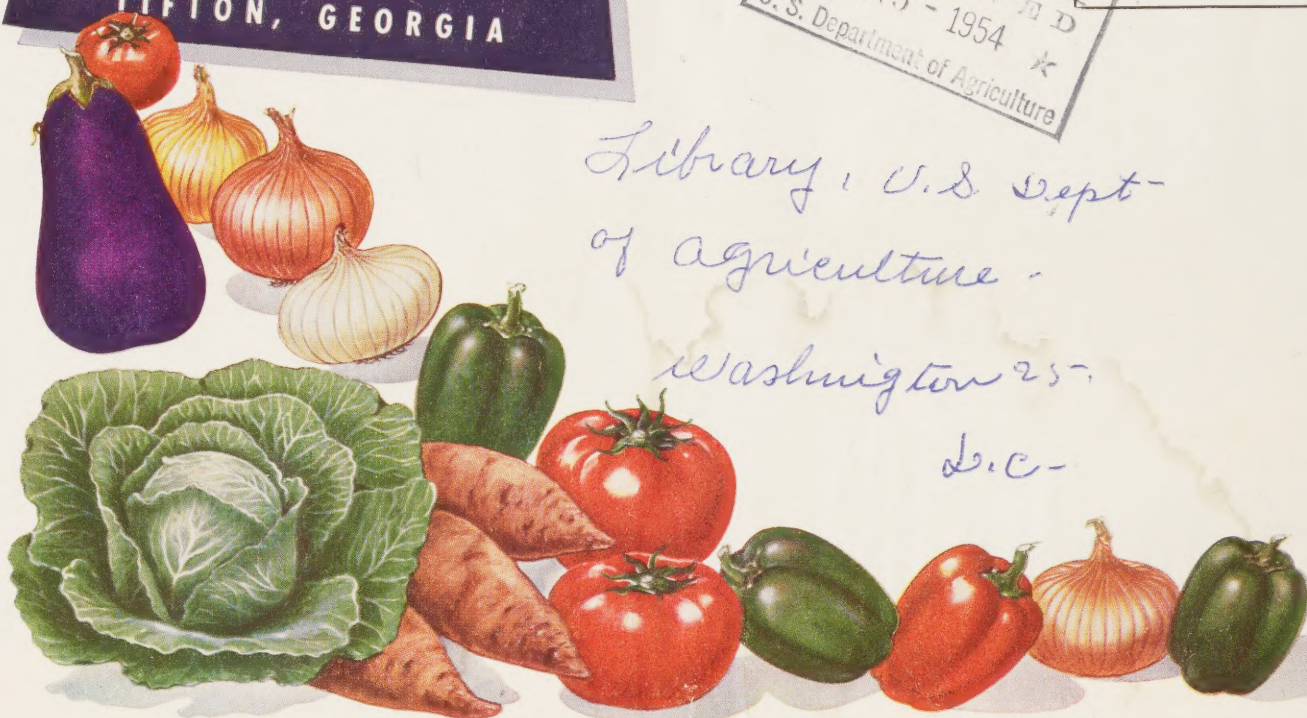 TIFTON, GEORGIA
- 1954
U. S. Department of Agriculture
Library, U.S Dept-
of agriculture -
Washington 25-
D.C-